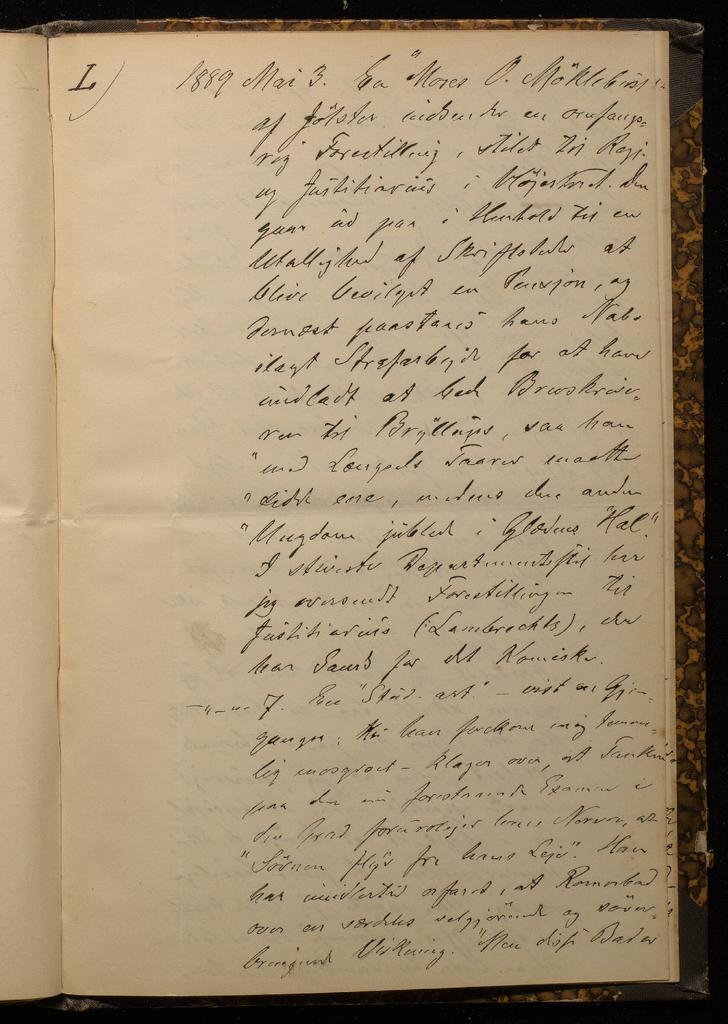 L)
1889 Mai 3. En "Moses O. Möklebust"
af Jölster indsender en omfangs-
rig Forestilling, stilet til Regj.
og Justitiarius i Höjesteret. Den
gaar ud paa i Henhold til en
Utallighed af Skriftsteder at
blive bevilget en Pension, og
dernæst paastaaes hans Nabo
ilagt Strafarbejde for at have
undladt at bede Brevskrive-
ren til Bryllups, saa han
"med Længsels Taarer maatte
"sidde ene, medens den anden
"Ungdom jublede i Glædens Hal."
I stiveste Departementsstil har
jeg oversendt Forestillingen til
Justitiarius (: Lambrechts), der
har Sands for det Komiske.
-"-"- 7. En "Stud. art." - vist en Gjen-
ganger; thi han forekom mig temme-
lig mosgroet - klager over, at Tanken
paa den nu forestaaende Examen i
den Grad foruroliger hans Nerver, at
"Sövnen flyr fra hans Leje". Han
har imidlertid erfaret, at Romerbad
over en særdeles velgjörende og söven-
bringende Virkning. "Men disse Bade er